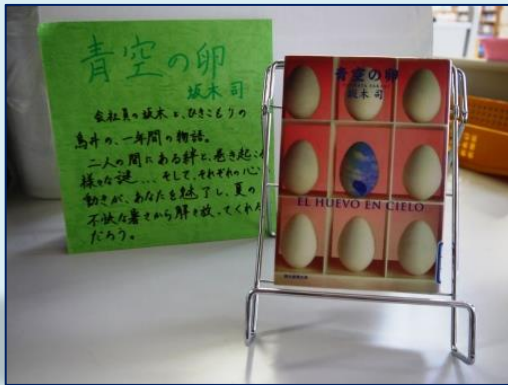 青空の卵
坂木 司
会社員の坂木と、ひきこもりの
鳥井の、一年間の物語。
二人の間にある絆と、巻き起こる
様々な謎...そして、それぞれの心の
動きが、あなたを魅了し、夏の
不快な暑さから解き放ってくれる
だろう。
青空の卵
坂木 司
EL HUEVO EN CIELO
創元推理文庫